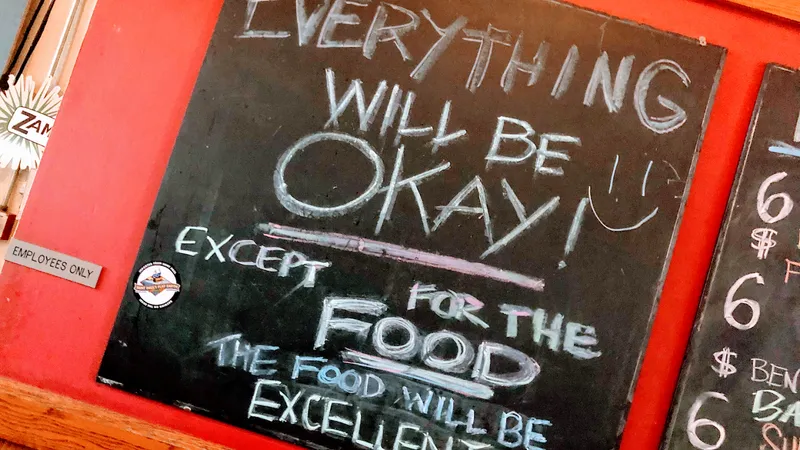 EVERYTHING
WILL BE
OKAY!
EXCEPT
FOR THE
FOOD
THE FOOD WILL BE
EXCELLENT
EMPLOYEES ONLY
ZAM
6
$
6
$ BEN
BA
6